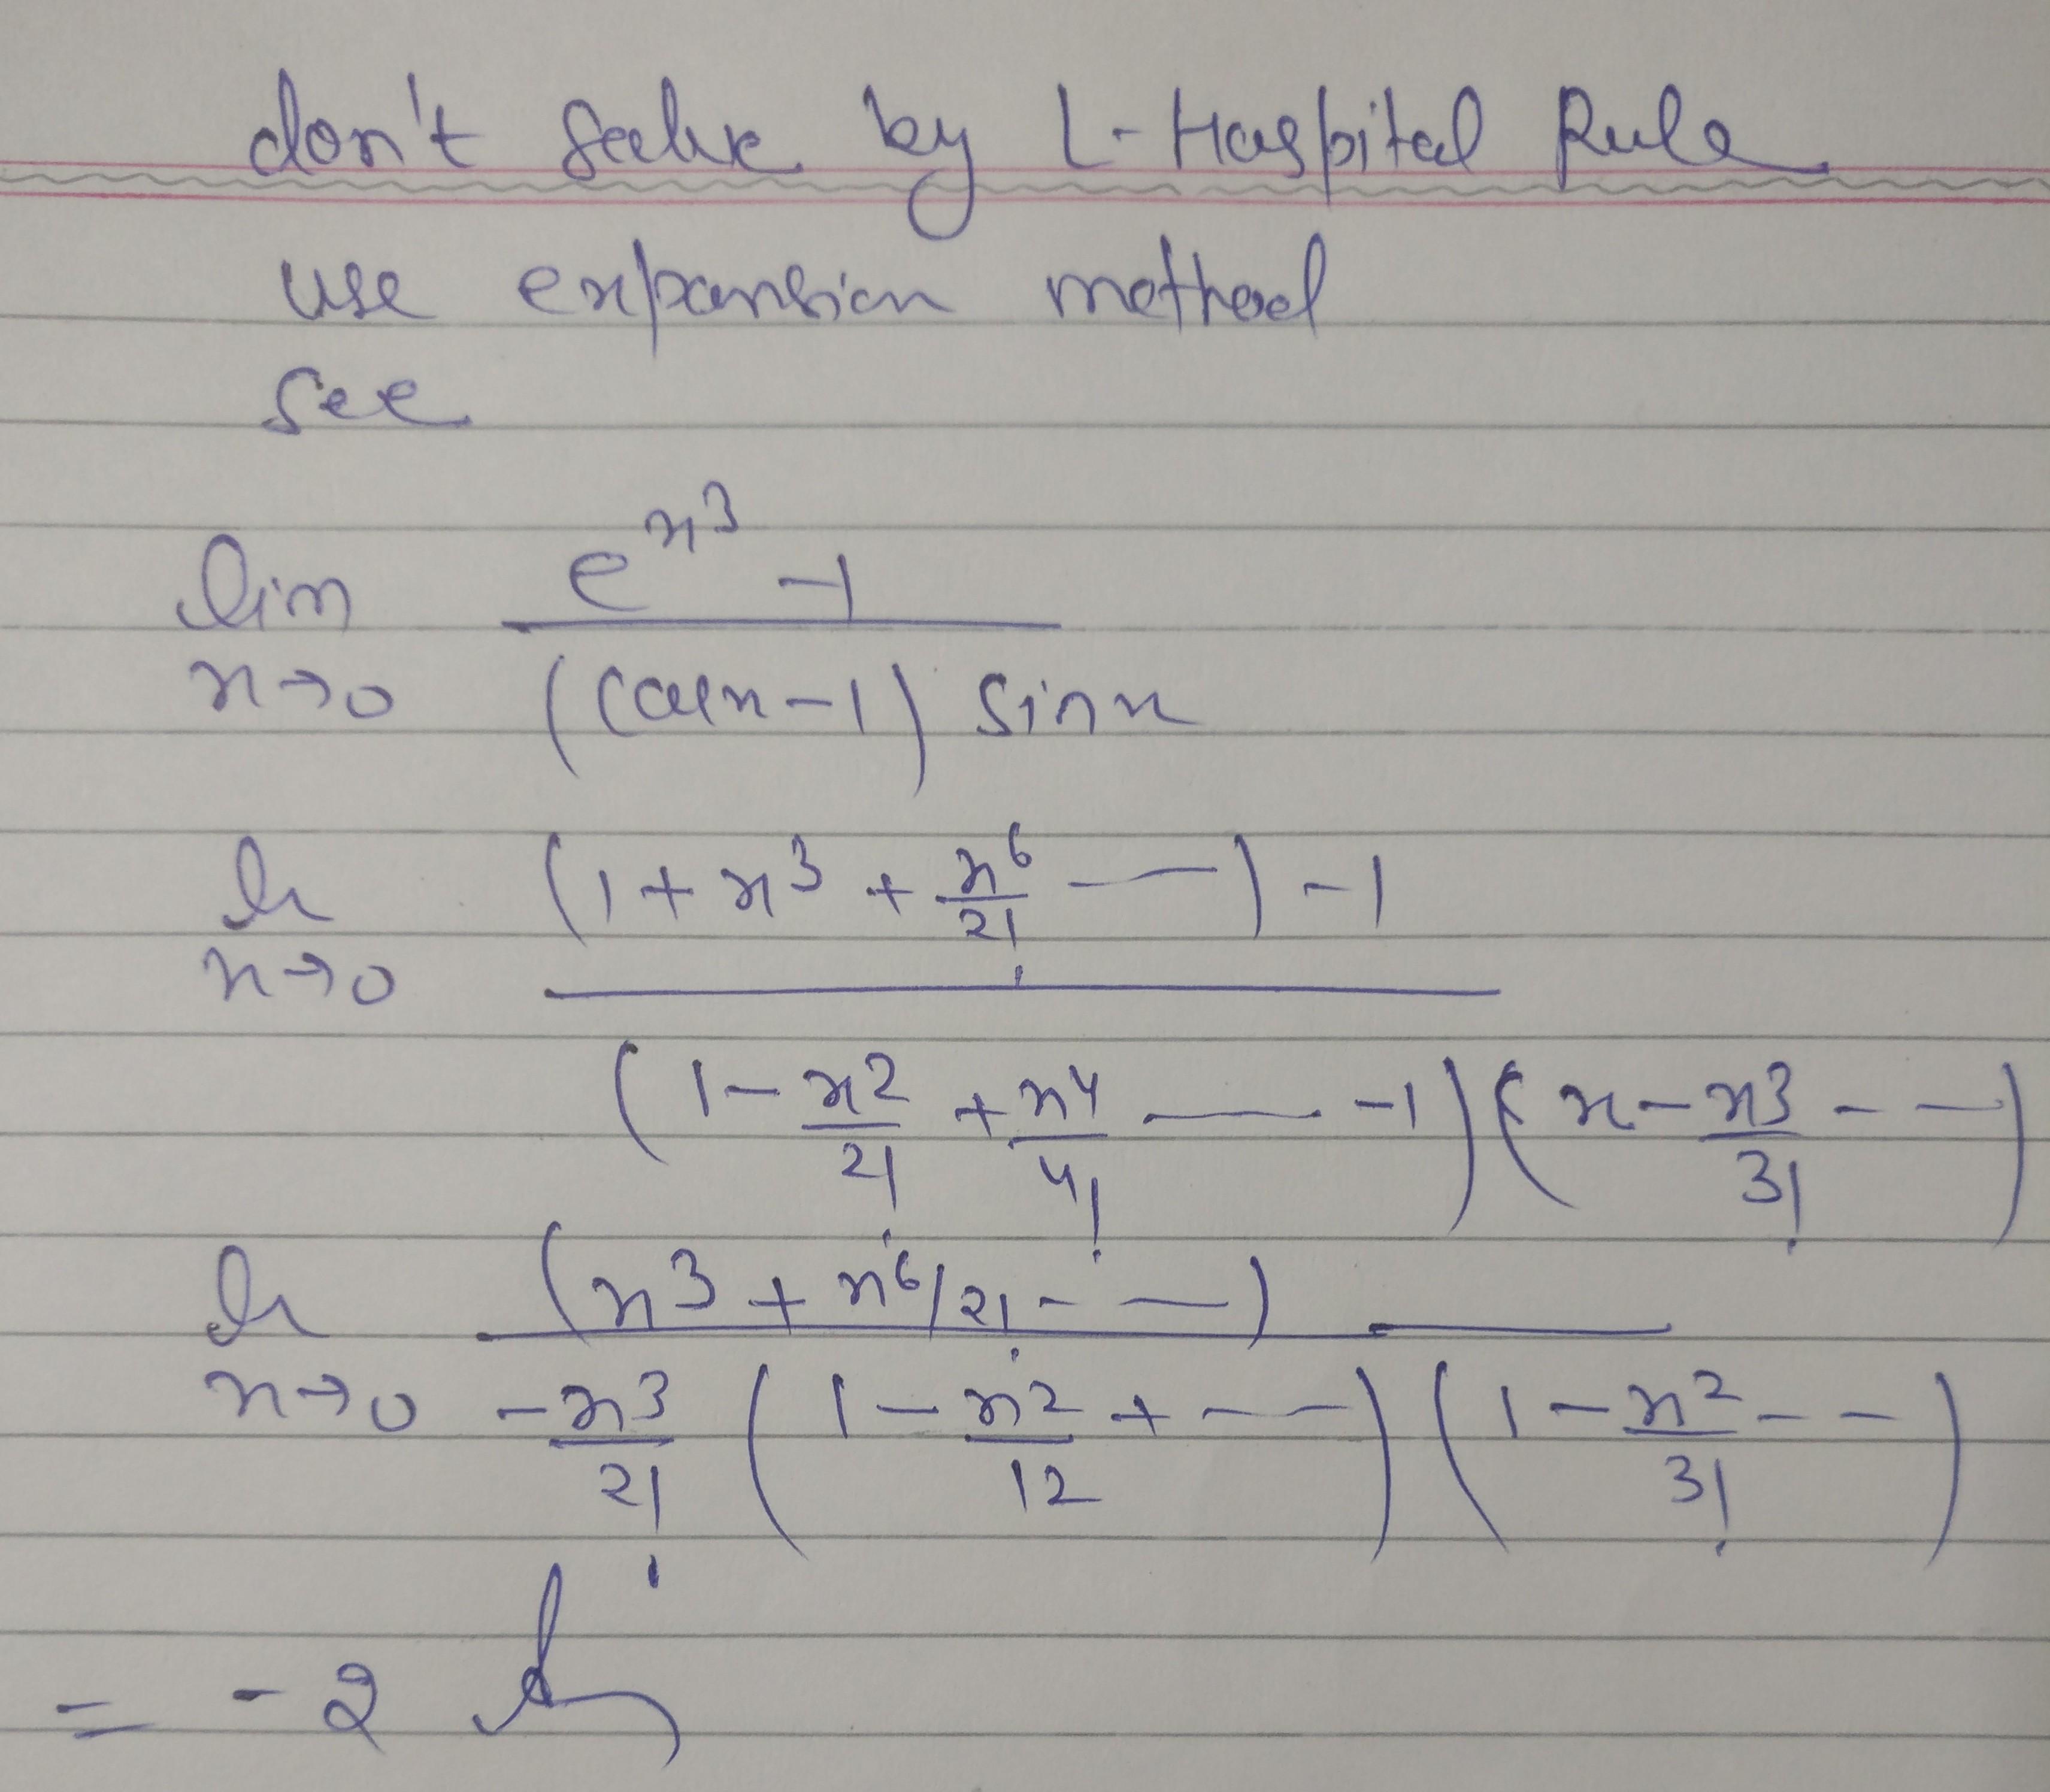 don't solve by L-Hospital Rule
use expansion method
See
lim x→0 (e^{x^3} - 1) / ((cosx - 1) sinx)
lt x→0 ((1 + x^3 + x^6/2! ---) - 1) / ((1 - x^2/2! + x^4/4! --- -1)(x - x^3/3! ---))
lt x→0 (x^3 + x^6/2! ---) / (-x^3/2! (1 - x^2/12 + ---)(1 - x^2/3! ---))
= -2